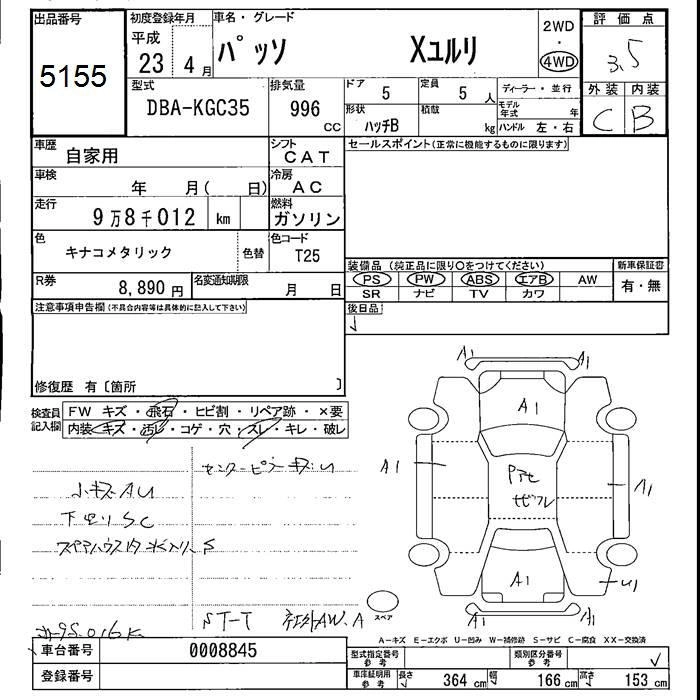 出品番号
5155
初度登録年月
平成
23 4 月
車名・グレード
パッソ Xユルリ
2WD
・
4WD
評価点
3.5
外装 内装
C B
型式
DBA-KGC35
排気量
996
CC
ドア 5
定員 5 人
形状
ハッチB
積載
kg
ディーラー・並行
モデル年式 年
ハンドル 左・右
車歴
自家用
シフト
CAT
セールスポイント(正常に機能するものに限ります)
車検
年 月( 日)
冷房
AC
走行
9万8千012 km
燃料
ガソリン
色
キナコメタリック
色替
色コード
T25
R券
8,890 円
名変通知期限
月 日
装備品 (純正品に限り〇をつけてください)
新車保証書
PS PW ABS エアB AW
有・無
SR ナビ TV カワ
後日品
注意事項申告欄(不具合内容等は具体的に記入して下さい)
修復歴 有〔箇所 〕
検査員
記入欄
FW キズ・飛石・ヒビ割・リペア跡・×要
内装・キズ・汚レ・コゲ・穴・スレ・キレ・破レ
センターピラーキズU
小キズAU
下廻りSC
S
A1
A1
A1
A1
A1
A1
A1
A1
U1
スペア
ST-T 社外AW.A
A-キズ E-エクボ U-凹み W-補修跡 S-サビ C-腐食 XX-交換済
車台番号
0008845
登録番号
型式指定番号
参考
類別区分番号
参考
車庫証明用
参考
長さ 364 cm
幅 166 cm
高さ 153 cm